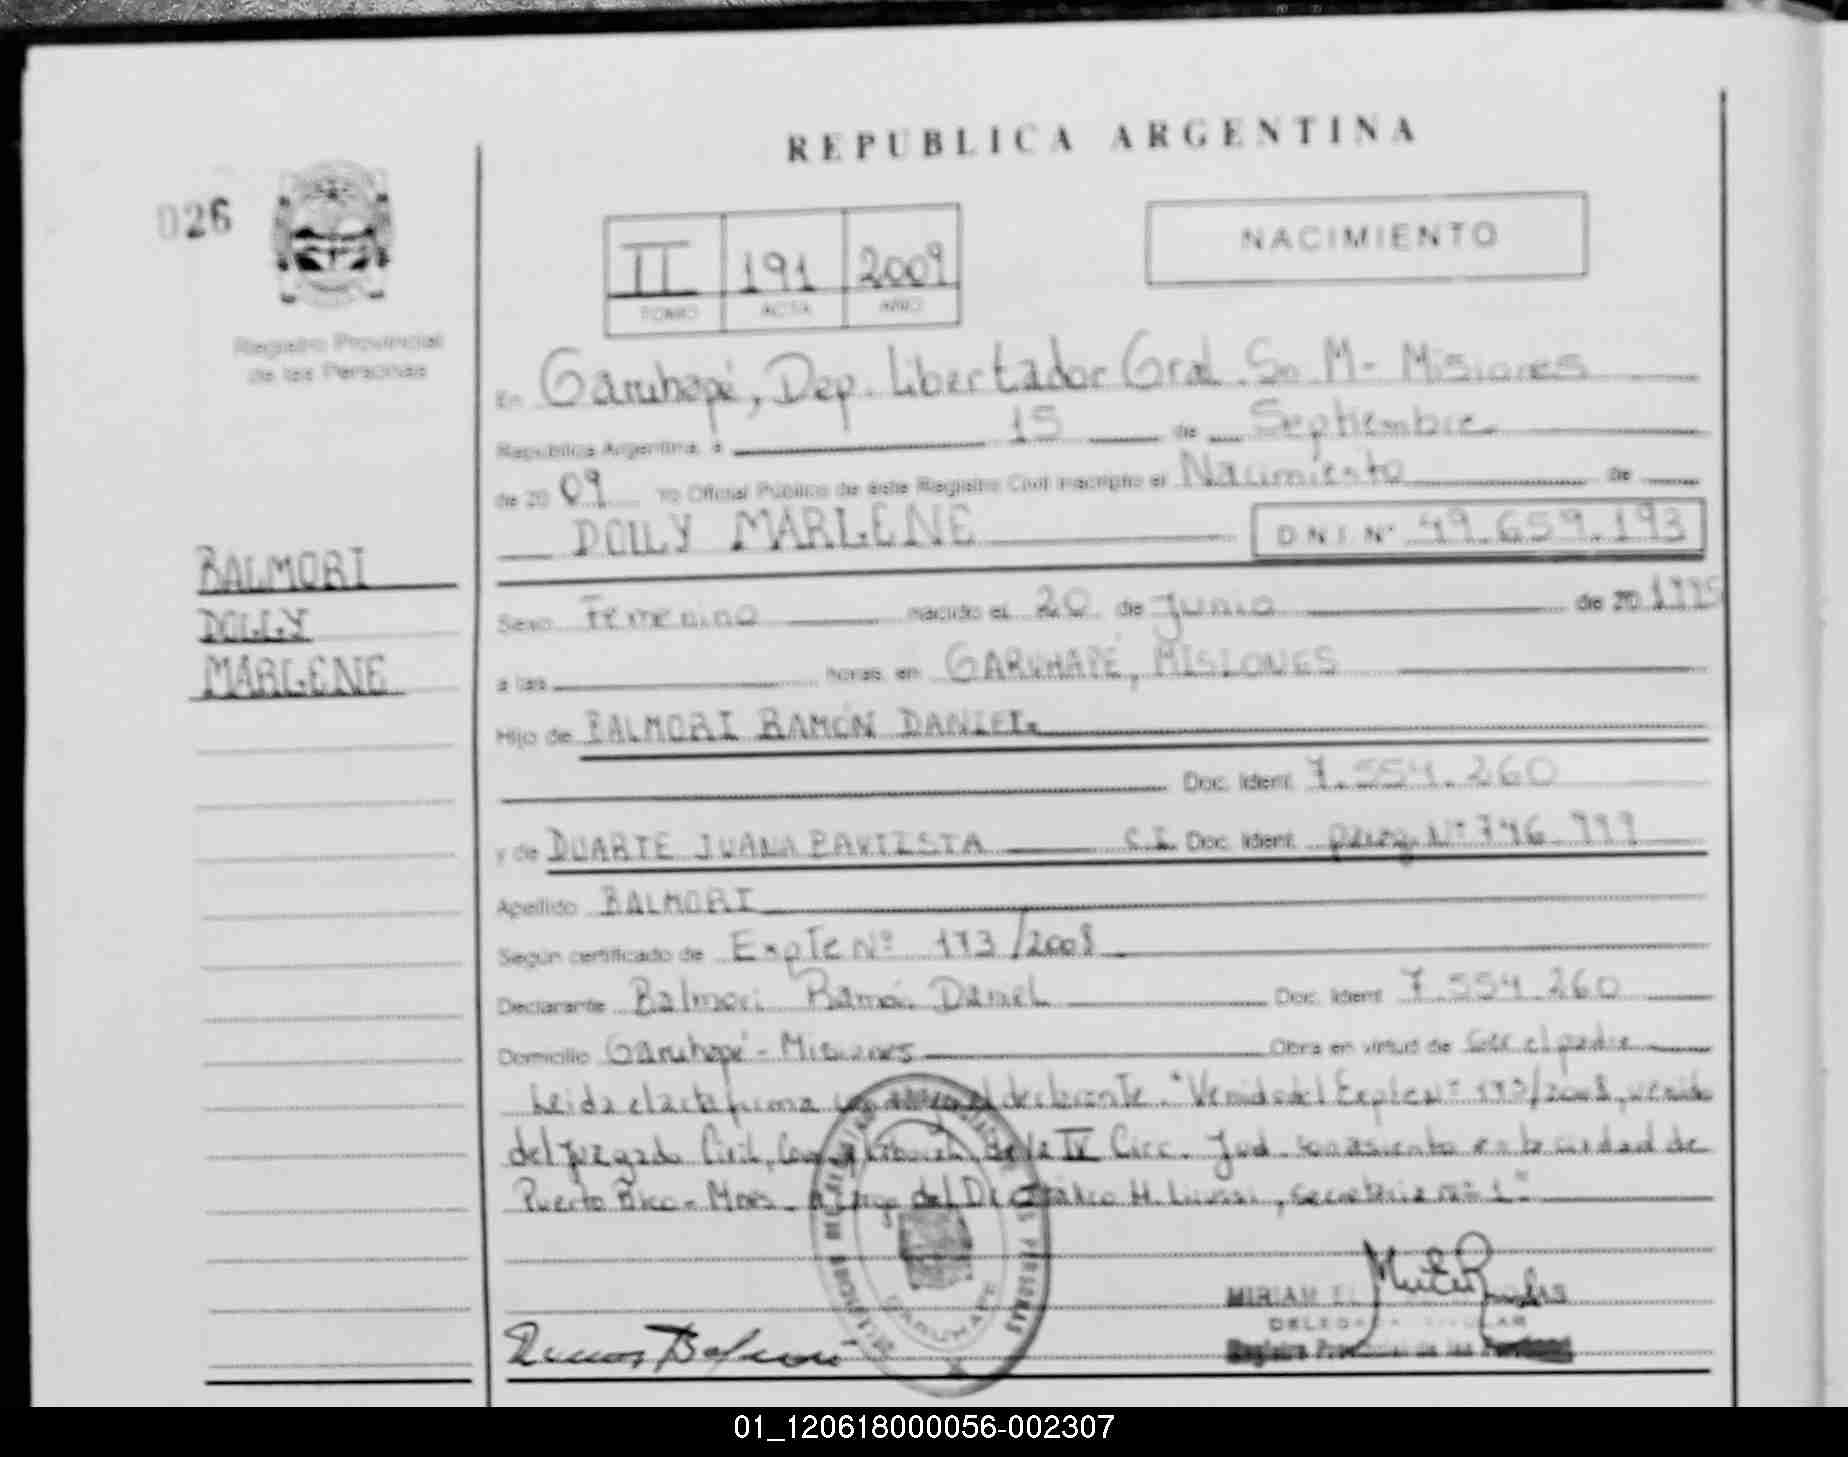 REPUBLICA ARGENTINA
026
NACIMIENTO
II 191 2009
TOMO ACTA AÑO
Registro Provincial
de las Personas
En Garuhapé, Dep. Libertador Gral. Sn M- Misiones
República Argentina, a 15 de Septiembre
de 20 09 Yo Oficial Público de éste Registro Civil inscripto el Nacimiento de
DOLLY MARLENE D N I N° 49.659.193
BALMORI
DOLLY
MARLENE
Sexo Femenino nacido el 20 de Junio de 20
a las horas en GARUHAPÉ, MISIONES
Hijo de BALMORI RAMÓN DANIEL
Doc. Ident. 7.554.260
y de DUARTE JUANA BAUTISTA C.I. Doc. Ident. N°
Apellido BALMORI
Según certificado de Expte N° 193/2008
Declarante Balmori Ramón Daniel Doc. Ident. 7.554.260
Domicilio Garuhapé - Misiones Obra en virtud de ser el padre
Leida el acta firma el declarante. "Venido del Expte N° 193/2008, venido
del Juzgado Civil, Com. y Laboral, de la IV Circ. Jud. con asiento en la ciudad de
Puerto Rico - Mnes. a cargo del Dr. H. , secretaria n° 1"
MIRIAM
DELEGADA TITULAR
Registro Provincial de las Personas
GARUHAPE
01_120618000056-002307